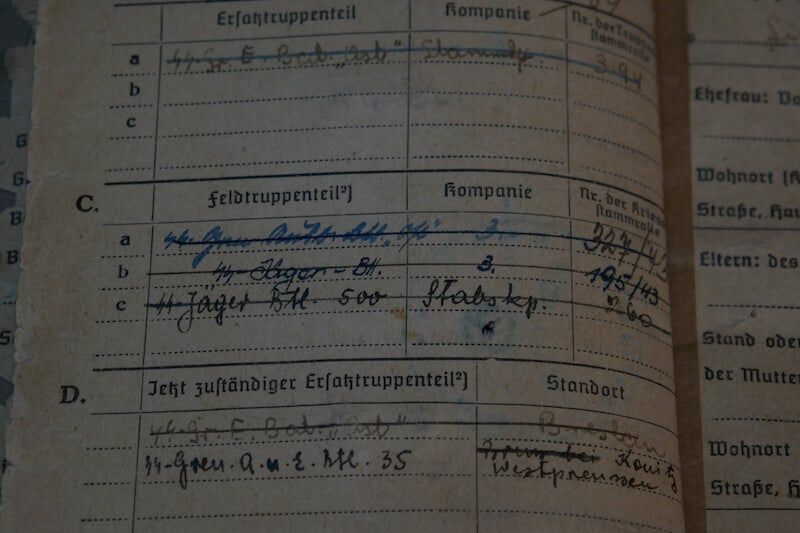 Ersatztruppenteil Kompanie Nr. der Truppen
stammrolle
a SS-Gr. E. Batl. „Ost“ Stammkp. 394
b
c
C. Feldtruppenteil²) Kompanie Nr. der Kriegs
stammrolle
a SS-Gren. Btl. „Ost“ 3. 327/43
b SS-Jäger-Btl. 3. 195/43
c SS-Jäger Btl. 500 Stabskp. 260
D. Jetzt zuständiger Ersatztruppenteil²) Standort
SS-Gr. E. Batl. „Ost“ Breslau
SS-Gren. A. u. E. Btl. 35 bei Konitz
Westpreussen
Ehefrau:
Wohnort
Straße, Hau
Eltern: des
Stand oder
der Mutter
Wohnort
Straße, H